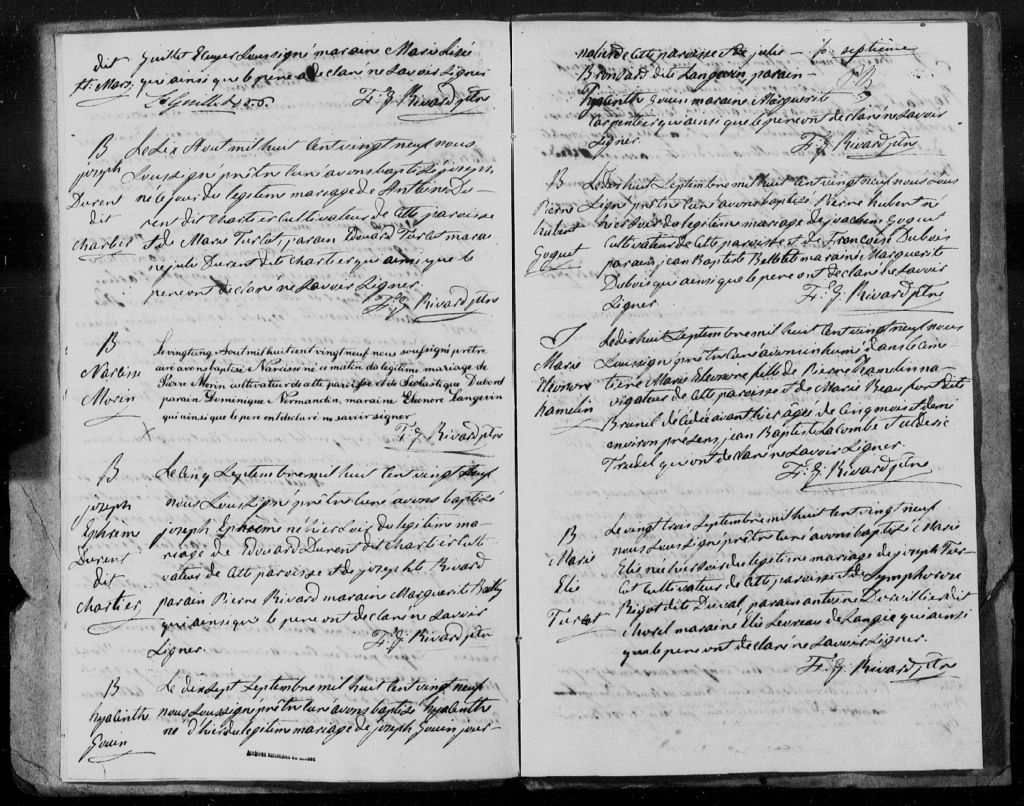 dit Guillet Ecuyer Soussigné maraine Marie Lisée
St. Mars, qui ainsi que le pere a declaré ne savoir signer
Frs. Z. Rivard ptre
B
joseph
Durent
dit
Chartier
Le six Aout mil huit cent vingt neuf nous
soussigné prêtre curé avons baptisé joseph
né ce jour du legitime mariage de Antoine Du-
rent dit Chartier Cultivateur de cette paroisse
et de Marie Turcot, parain Edouard Turcot marai
ne julie Durent dite Chartier qui ainsi que le
pere ont declaré ne savoir signer.
Frs. Z. Rivard ptre
B
Narcisse
Morin
Le vingt ung Aout mil huit cent vingt neuf nous soussigné prêtre
curé avons baptisé Narcisse né ce matin du legitime mariage de
Pierre Morin cultivateur de cette paroisse et de Scholastique Dubord
parain Dominique Normandin, maraine Elienore Langevin
qui ainsi que le pere ont declaré ne savoir signer
Frs. Z. Rivard ptre
B
joseph
Ephreim
Durent
dit
Chartier
Le cinq Septembre mil huit cent vingt neuf
nous soussigné prêtre curé avons baptisé
joseph Ephreme né hier soir du legitime ma-
riage de Edouard Durent dit Chartier Culti-
vateur de cette paroisse et de josephte Rivard
parain Pierre Rivard maraine Marguerite Bailly
qui ainsi que le pere ont declaré ne savoir
signer.
Frs. Z. Rivard ptre
B
hyacinthe
Gouin
Le dix sept Septembre mil huit cent vingt neuf
nous soussigné prêtre curé avons baptisé hyacinthe
né d'hier du legitime mariage de joseph Gouin jour-
nalier de cette paroisse et de julie
Bronsard dite Langevin, parain
hyacinthe Gouin maraine Marguerite
Carpentier qui ainsi que le pere ont declaré ne savoir
signer
Frs. Z. Rivard ptre
septième
B
Pierre
hubert
Goguet
Le dix huit Septembre mil huit cent vingt neuf nous sous
signé prêtre curé avons baptisé Pierre hubert né
hier soir du legitime mariage de joachim Goguet
Cultivateur de cette paroisse et de Francoise Dubois
parain jean Baptiste Belletete maraine Marguerite
Dubois qui ainsi que le pere ont declaré ne savoir
signer
Frs. Z. Rivard ptre
S
Marie
Eleonore
hamelin
Le dix huit Septembre mil huit cent vingt neuf nous
soussigné prêtre curé avons inhumé dans le cime
tière Marie Eleonore fille de Pierre hamelin na-
vigateur de cette paroisse et de Marie Beaufort dite
Brunel décédée avant hier âgée de cinq mois et demi
environ presens jean Baptiste Lacombe et ulderic
Trudel qui ont declaré ne savoir signer.
Frs. Z. Rivard ptre
B
Marie
Elie
Turcot
Le vingt trois Septembre mil huit cent vingt neuf
nous soussigné prêtre curé avons baptisé Marie
Elie née hier soir du legitime mariage de joseph Tur-
cot cultivateur de cette paroisse et de Symphorose
Rigot dite Duval, parain antoine Duvillier dit
chorel maraine Elie Levreau de Langie qui ainsi
que le pere ont declaré ne savoir signer.
Frs. Z. Rivard ptre
Archives nationales du Québec